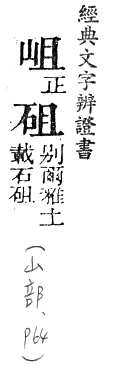 經典文字辨證書
岨正
砠別爾雅土
戴石砠
(山部、p64)